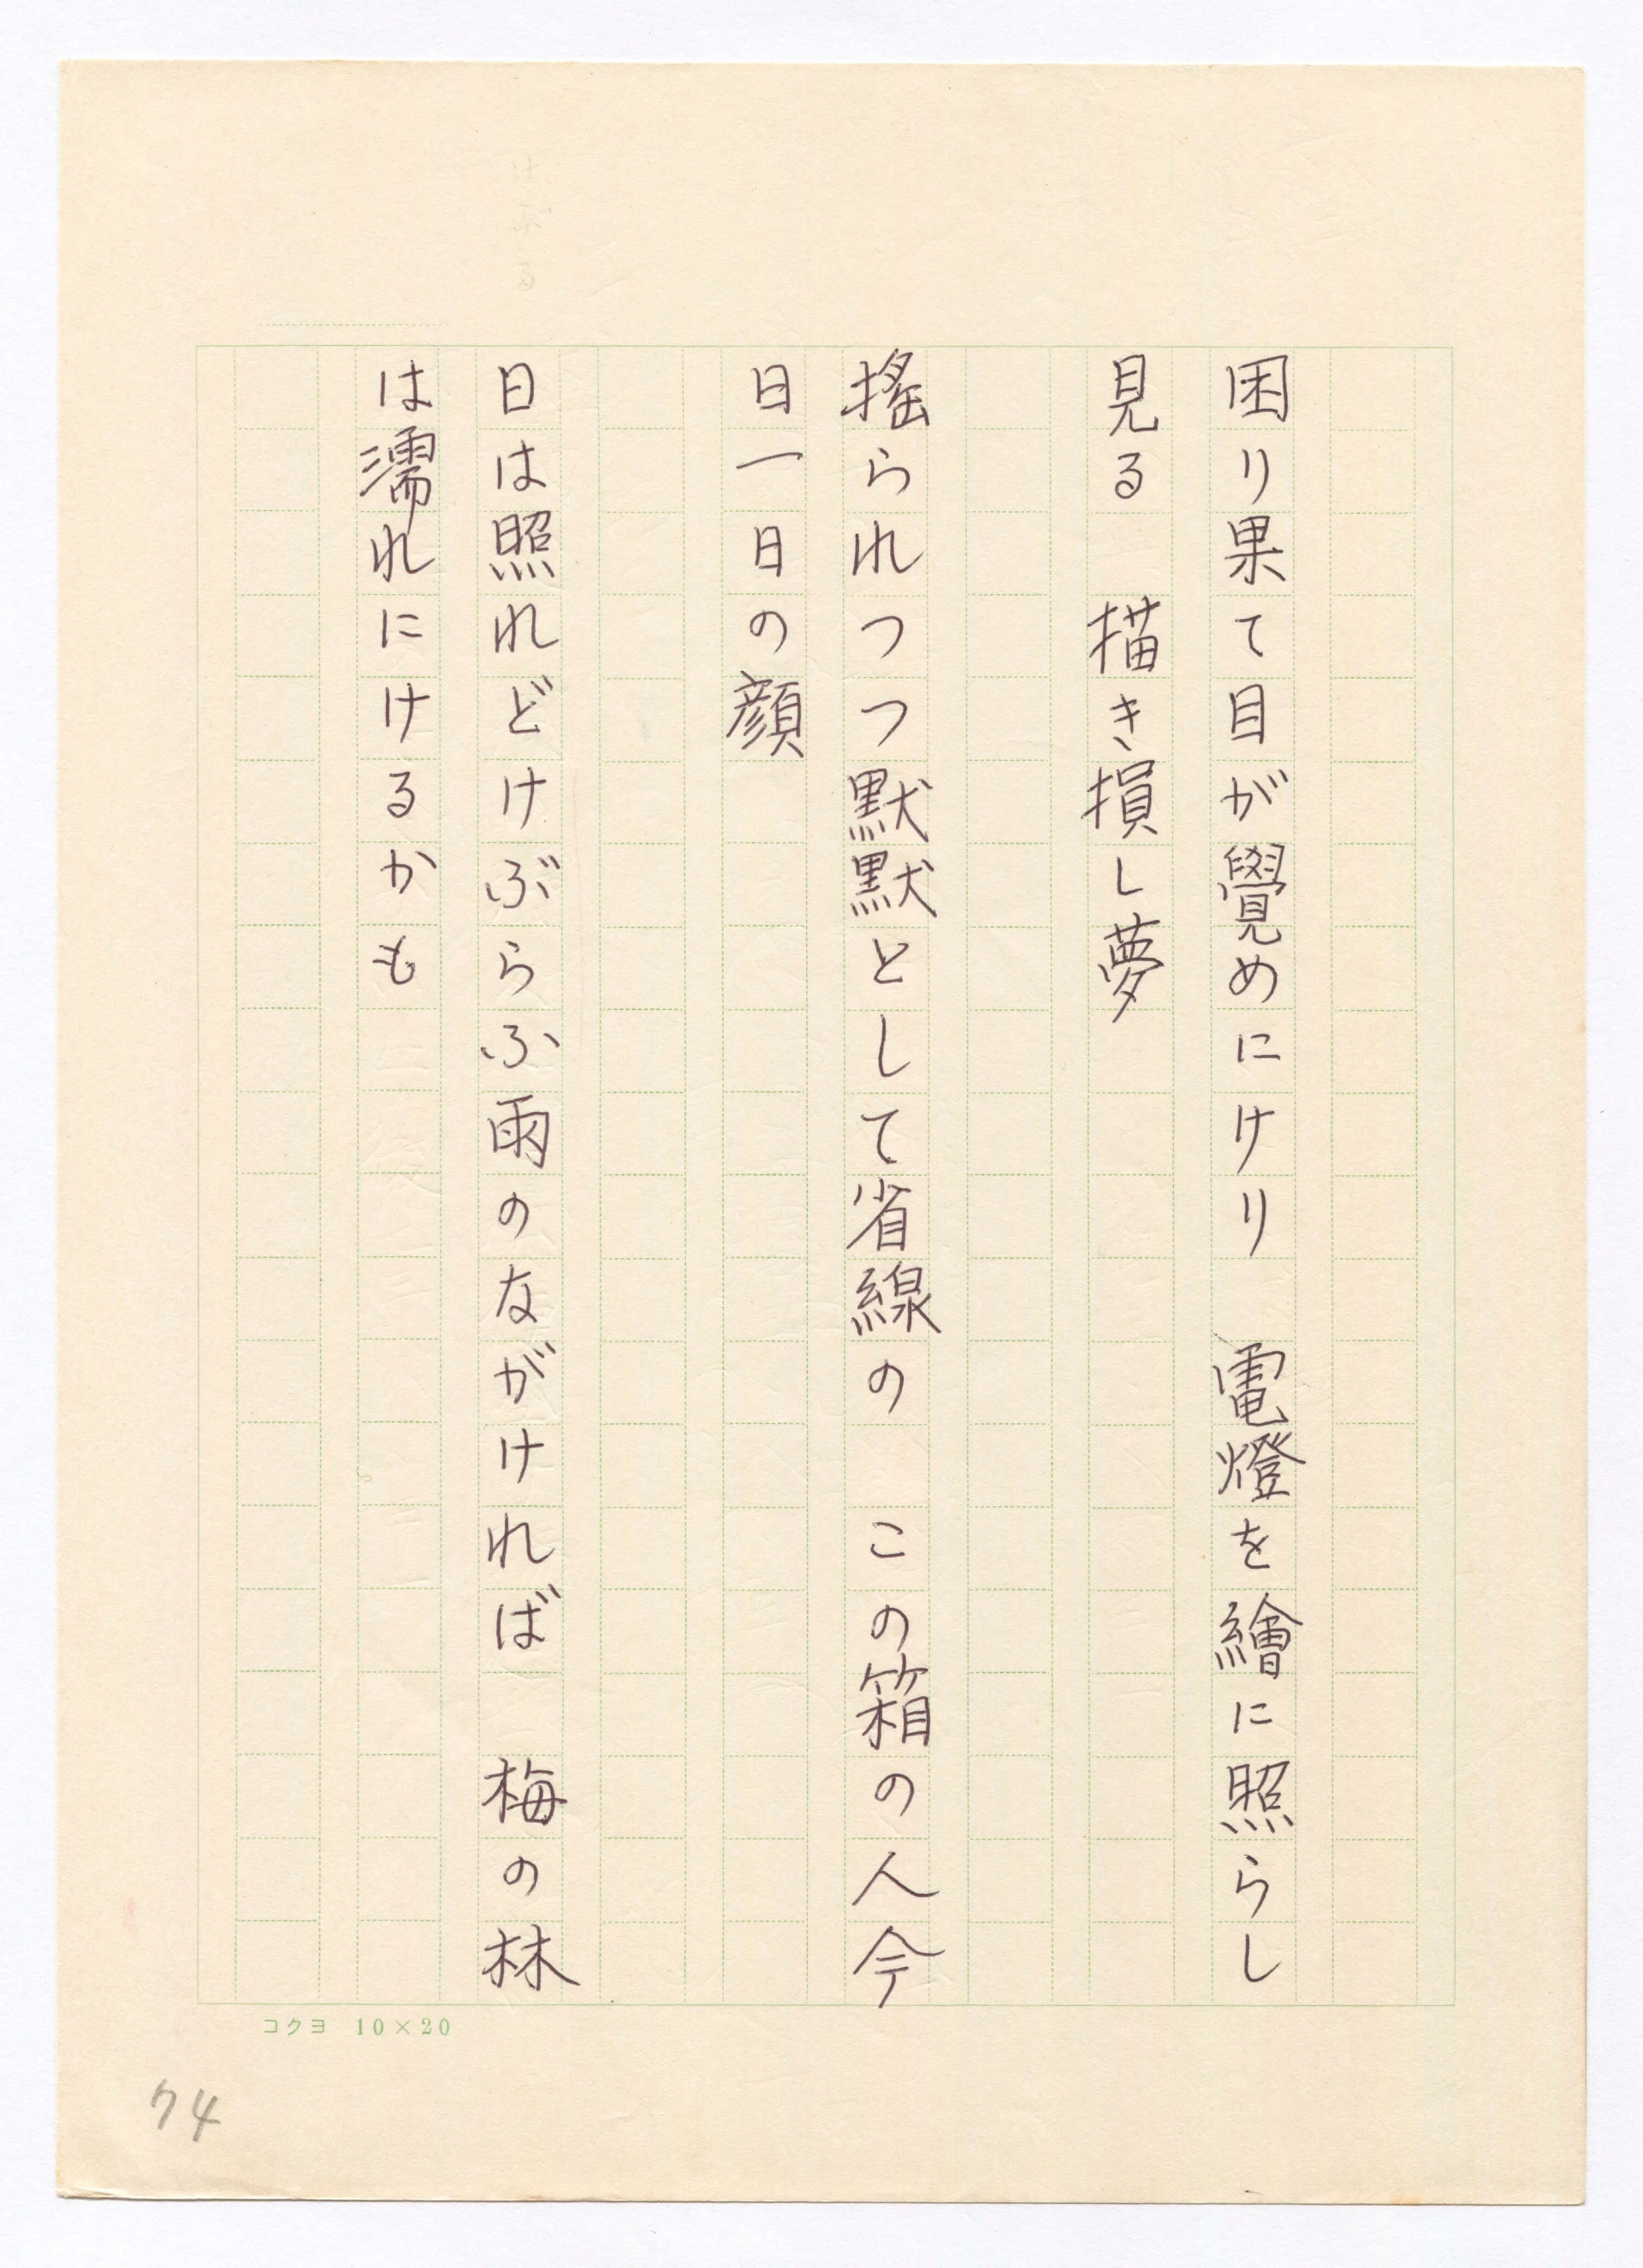 困り果て目が覺めにけり　電燈を繪に照らし
見る　描き損し夢
搖られつつ默默として省線の　この箱の人今
日一日の顔
日は照れどけぶらふ雨のながければ　梅の林
は濡れにけるかも
コクヨ 10×20
74